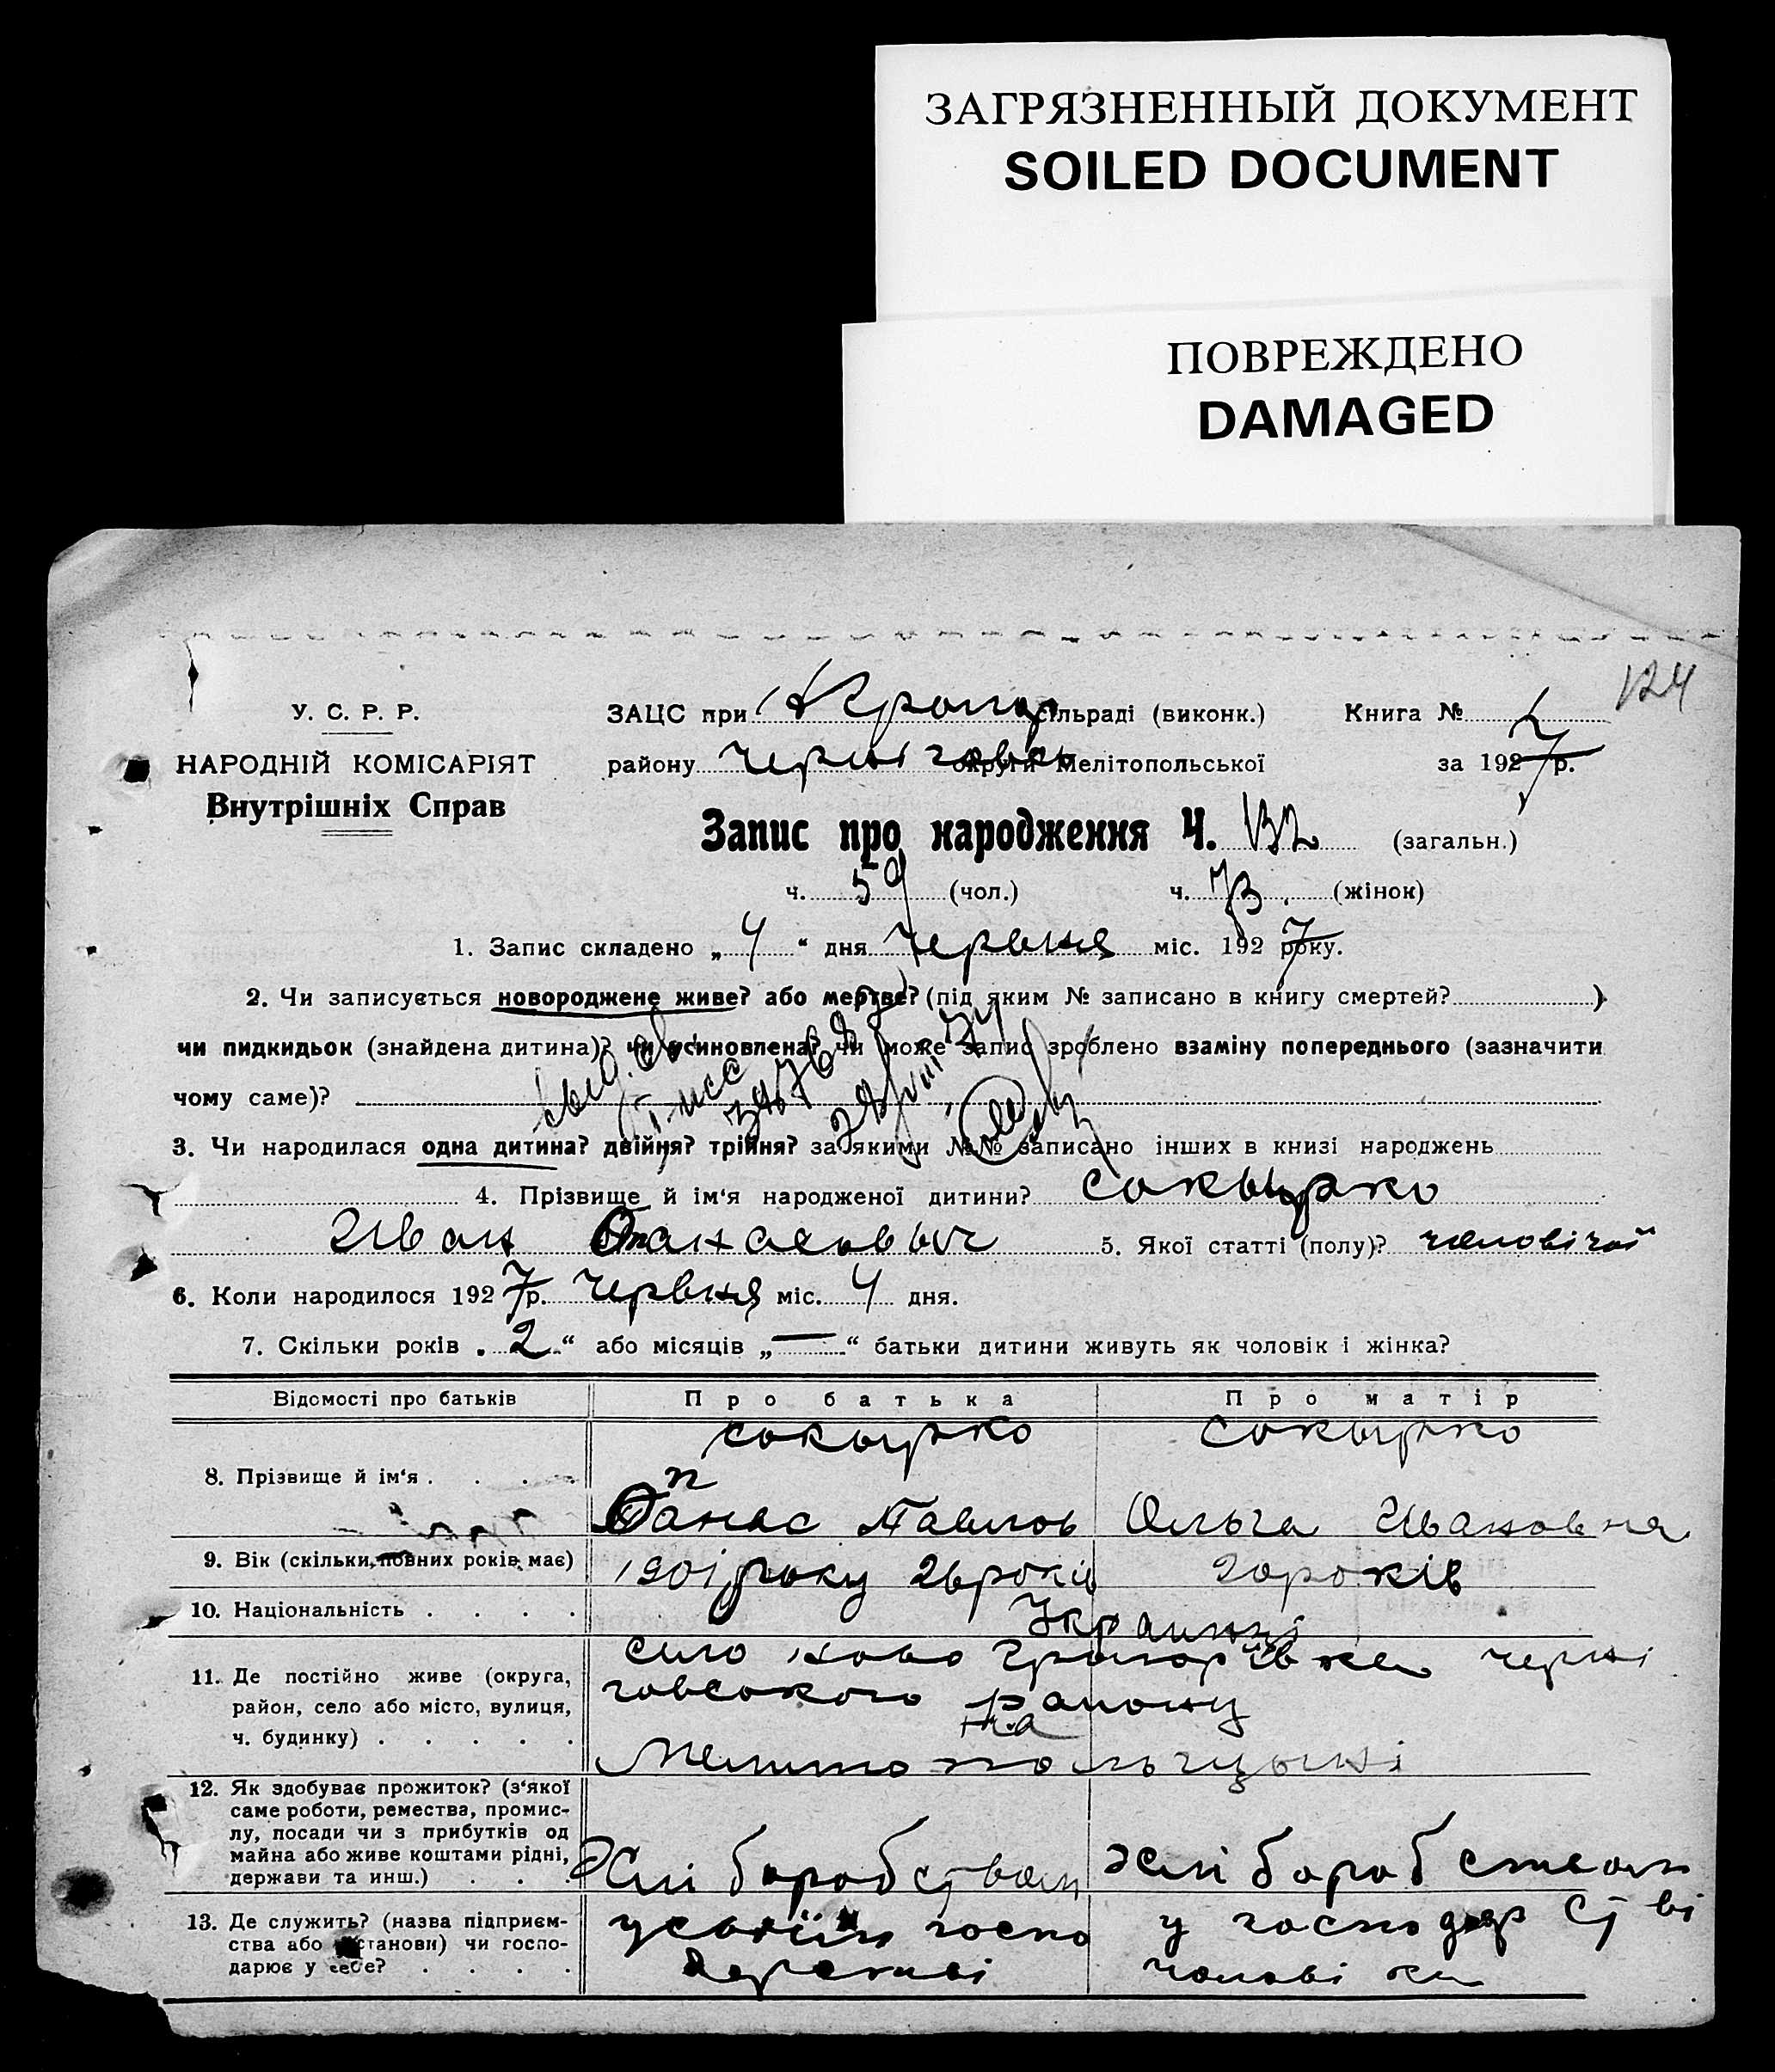 ЗАГРЯЗНЕННЫЙ ДОКУМЕНТ
SOILED DOCUMENT
ПОВРЕЖДЕНО
DAMAGED
124
У. С. Р. Р.
НАРОДНІЙ КОМІСАРІЯТ
Внутрішніх Справ
ЗАЦС при сільраді (виконк.) Книга №
району Чернігівсь округи Мелітопольської за 1927 р.
Запис про народження Ч. 132 (загальн.)
ч. 59 (чол.) ч. 73 (жінок)
1. Запис складено „ 4 “ дня Червня міс. 1927 року.
2. Чи записується новороджене живе? або мертве? (під яким № записано в книгу смертей? )
чи пидкидьок (знайдена дитина)? чи усиновлена? чи може запис зроблено взаміну попереднього (зазначити
чому саме)?
3. Чи народилася одна дитина? двійня? трійня? за якими №№ записано інших в книзі народжень
4. Прізвище й ім‘я народженої дитини? Сокырко
Иван Опанасовыч 5. Якої статті (полу)? чоловічої
6. Коли народилося 1927 р. Червня міс. 4 дня.
7. Скільки років „ 2 “ або місяців „ — “ батьки дитини живуть як чоловік і жінка?
Відомості про батьків Про батька Про матір
8. Прізвище й ім‘я . . . .
Сокырко Сокырко
Опанас Павлов Ольга Ивановна
9. Вік (скільки повних років має) 1901 року 26 років 20 років
10. Національність . . . . Украинці
11. Де постійно живе (округа,
район, село або місто, вулиця,
ч. будинку) . . . . .
село Ново Григорівка черні
говського району
на
Мелитопольщыні
12. Як здобуває прожиток? (з‘якої
саме роботи, ремества, промис-
лу, посади чи з прибутків од
майна або живе коштами рідні,
держави та инш.) . . .
Хліборобством хліборобством
13. Де служить? (назва підприєм-
ства або установи) чи госпо-
дарює у себе? . . . .
у своїм госпо
дарстві
у господарстві
чоловіка